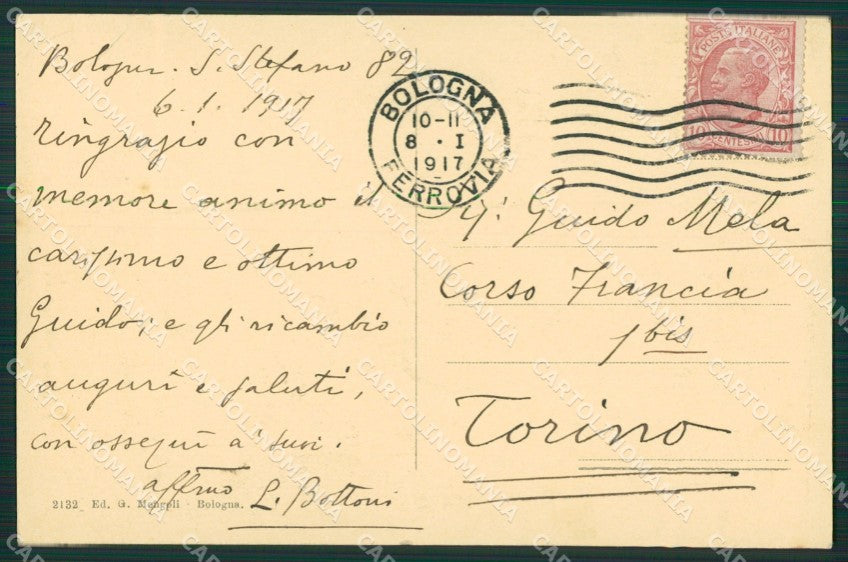 Bologna. S. Stefano 82
6.1.1917
ringrazio con
memore animo il
carissimo e ottimo
Guido, e gli ricambio
auguri e saluti,
con ossequi a' suoi.
affmo
L. Bottoni
2132 Ed. G. Mengoli - Bologna.
BOLOGNA
10-11
8 · I
1917
FERROVIA
POSTE ITALIANE
10 CENTESIMI 10
Guido Mela
Corso Francia
1 bis
Torino
CARTOLINOMANIA